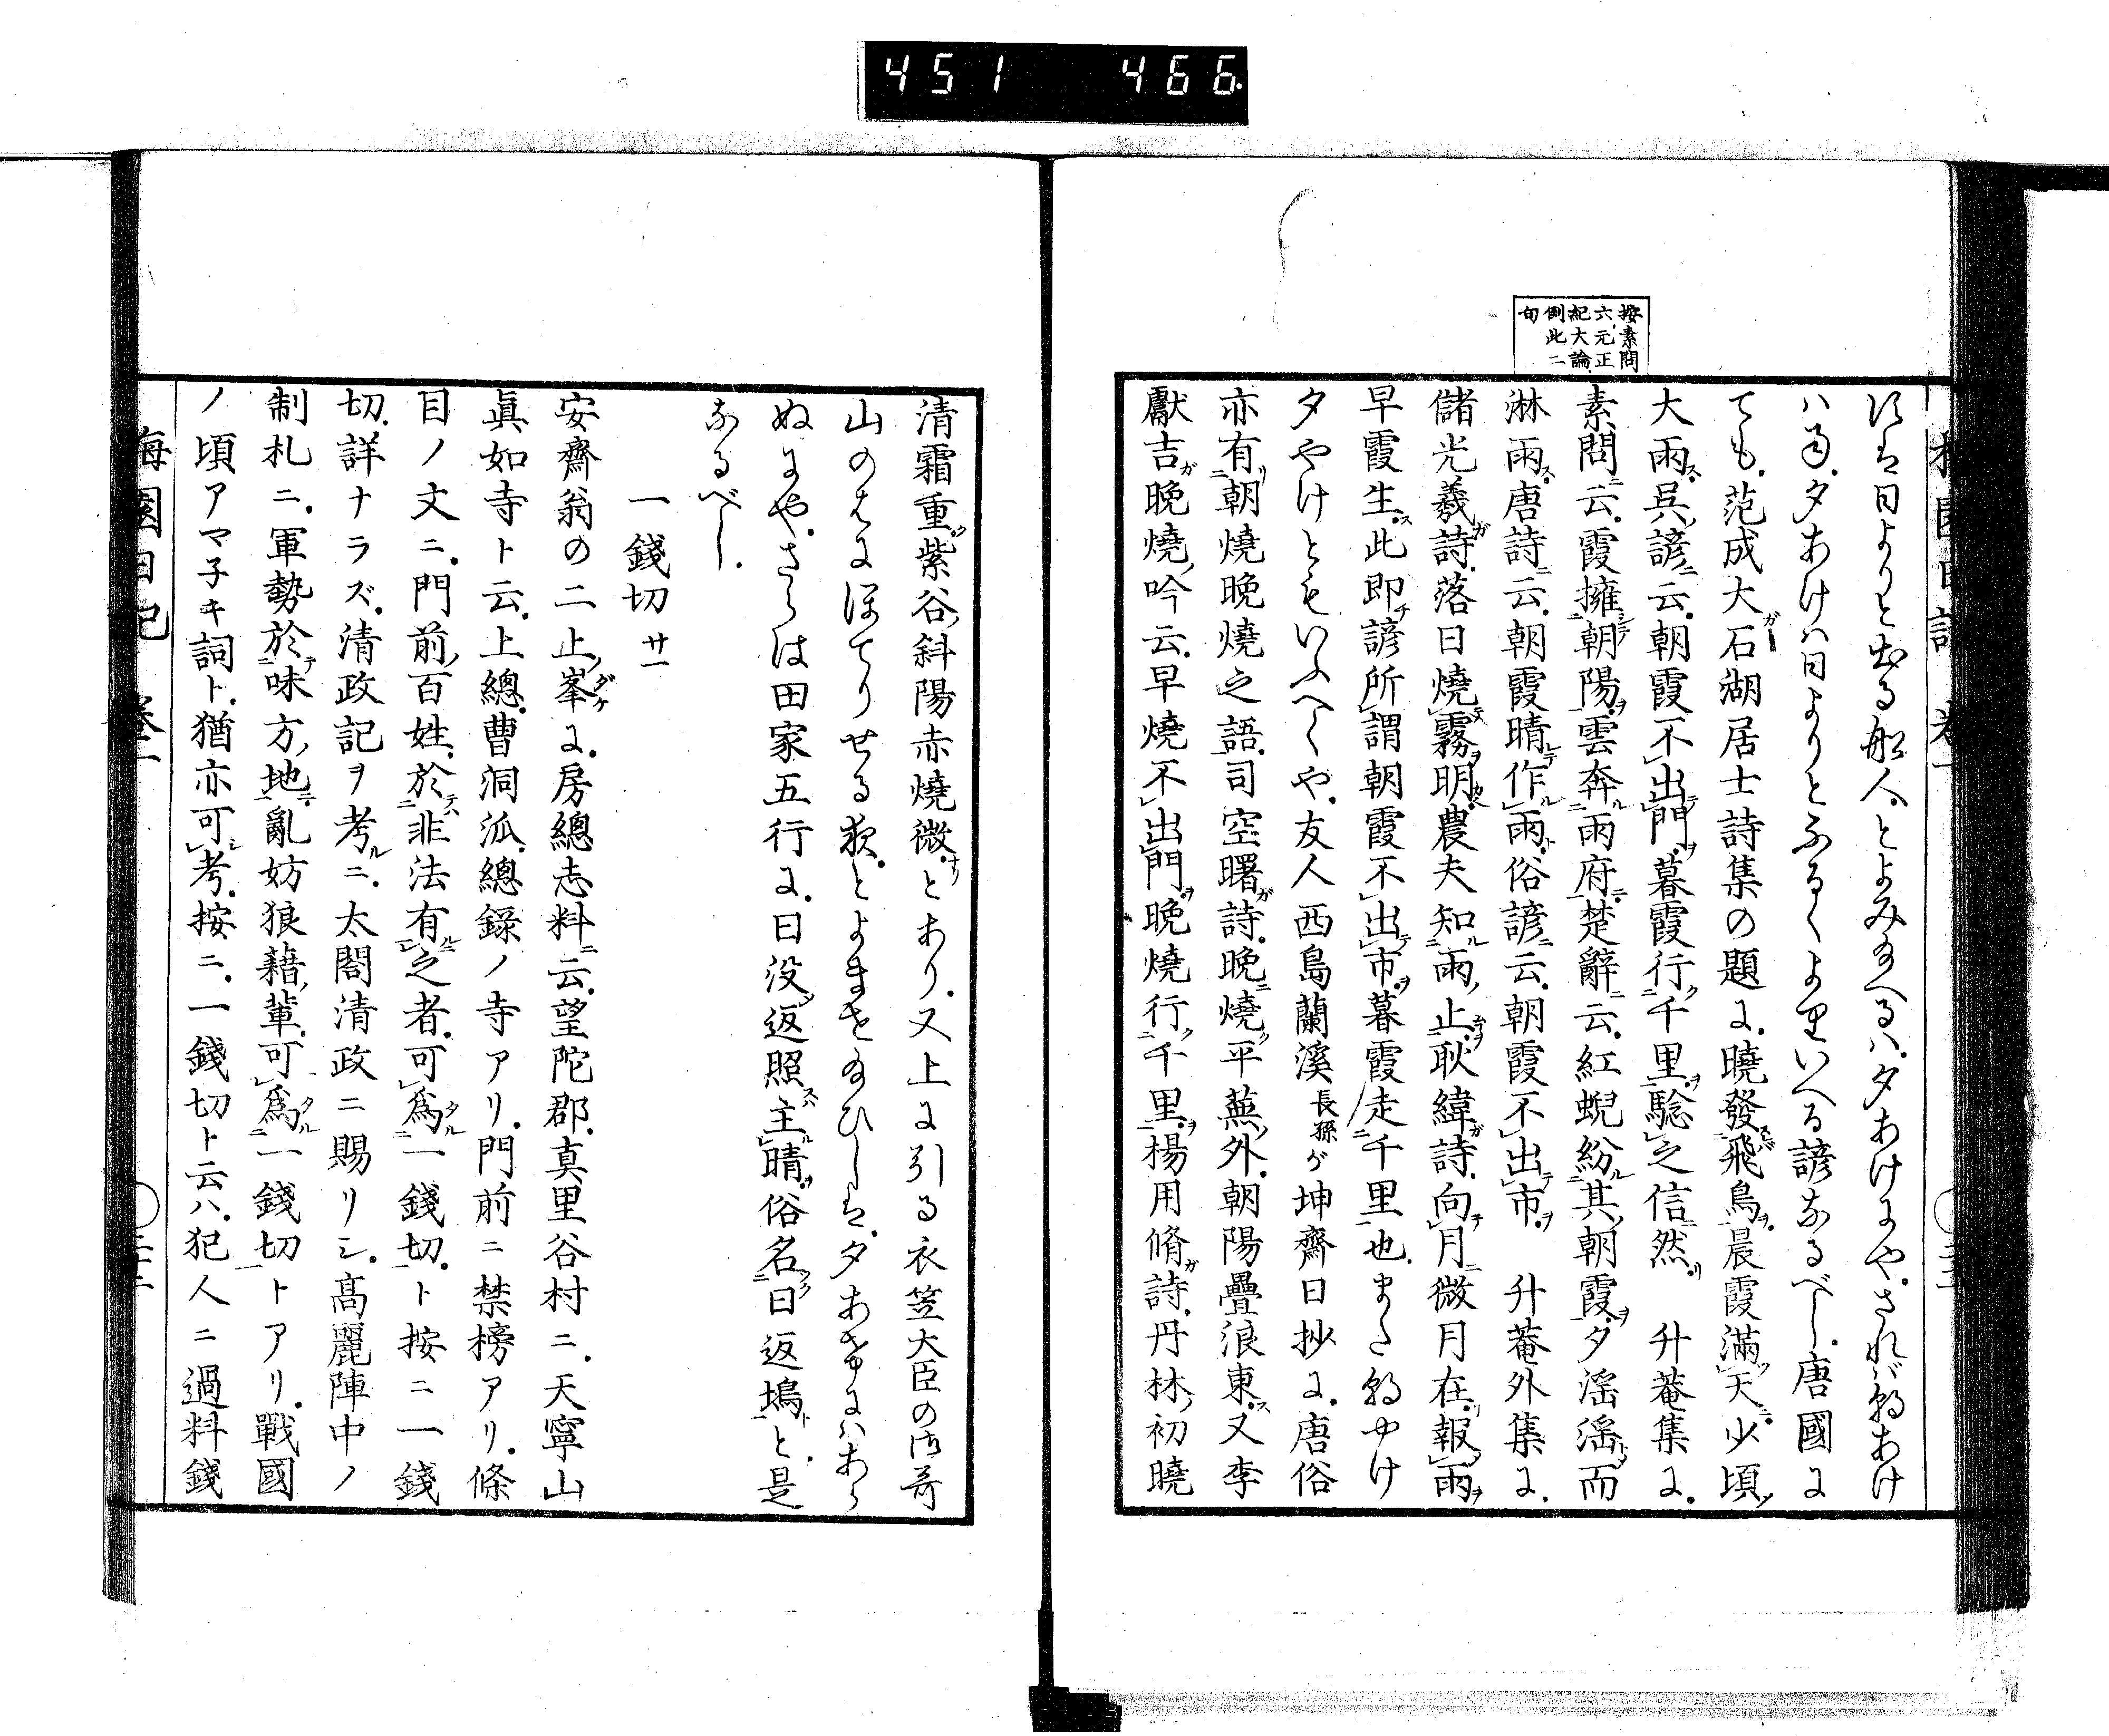 451 466
按素問
六元正
紀大論
倒此二
句
はは日よりと出る船人。とよみ給へるハ。夕あけにや。されバ朝あけ
ハ雨。夕あけハ日よりとふるくよりいへる諺なるべし。唐國に
ても。范成大ガ石湖居士詩集の題に。曉發飛烏。晨霞滿天。少頃
大雨。呉諺云。朝霞不出門。暮霞行千里。驗之信然。 升菴集に。
素問云。霞擁朝陽。雲奔雨府。楚辭云。紅蜺紛其朝霞。夕淫淫而
淋雨。唐詩云。朝霞晴作雨。俗諺云。朝霞不出市。 升菴外集に。
儲光羲詩。落日燒霧明。農夫知雨止。耿緯詩。向月微月在。報雨
早霞生。此即諺所謂朝霞不出市。暮霞走千里也。また朝やけ
夕やけともいふへくや。友人西島蘭溪長孫が坤齋日抄に。唐俗
亦有朝燒晩燒之語。司空曙詩。晩燒平蕪外。朝陽疊浪東。又李
獻吉晩燒吟云。早燒不出門。晩燒行千里。楊用脩詩。丹林初曉
清霜重。紫谷斜陽赤燒微。とあり。又上に引る衣笠大臣の御哥
山のはにほてりせる夜。とよませ給ひしは。夕あけにハあら
ぬにや。さらは田家五行に。日没返照主晴。俗名曰返塢。と是
なるべし。
一錢切 廿一
安齋翁の二止峯に。房總志料云。望陀郡。真里谷村ニ。天寧山
眞如寺ト云。上總。曹洞派。總錄ノ寺アリ。門前ニ禁榜アリ。條
目ノ文ニ。門前百姓。於非法有之者。可爲一錢切。ト按ニ一錢
切。詳ナラズ。清政記ヲ考ルニ。太閤清政ニ賜リシ。高麗陣中ノ
制札ニ。軍勢於味方地。亂妨狼藉輩。可爲一錢切トアリ。戰國
ノ頃アマ子キ詞ト。猶亦可考。按ニ。一錢切ト云ハ。犯人ニ過料錢
梅園日記 卷一